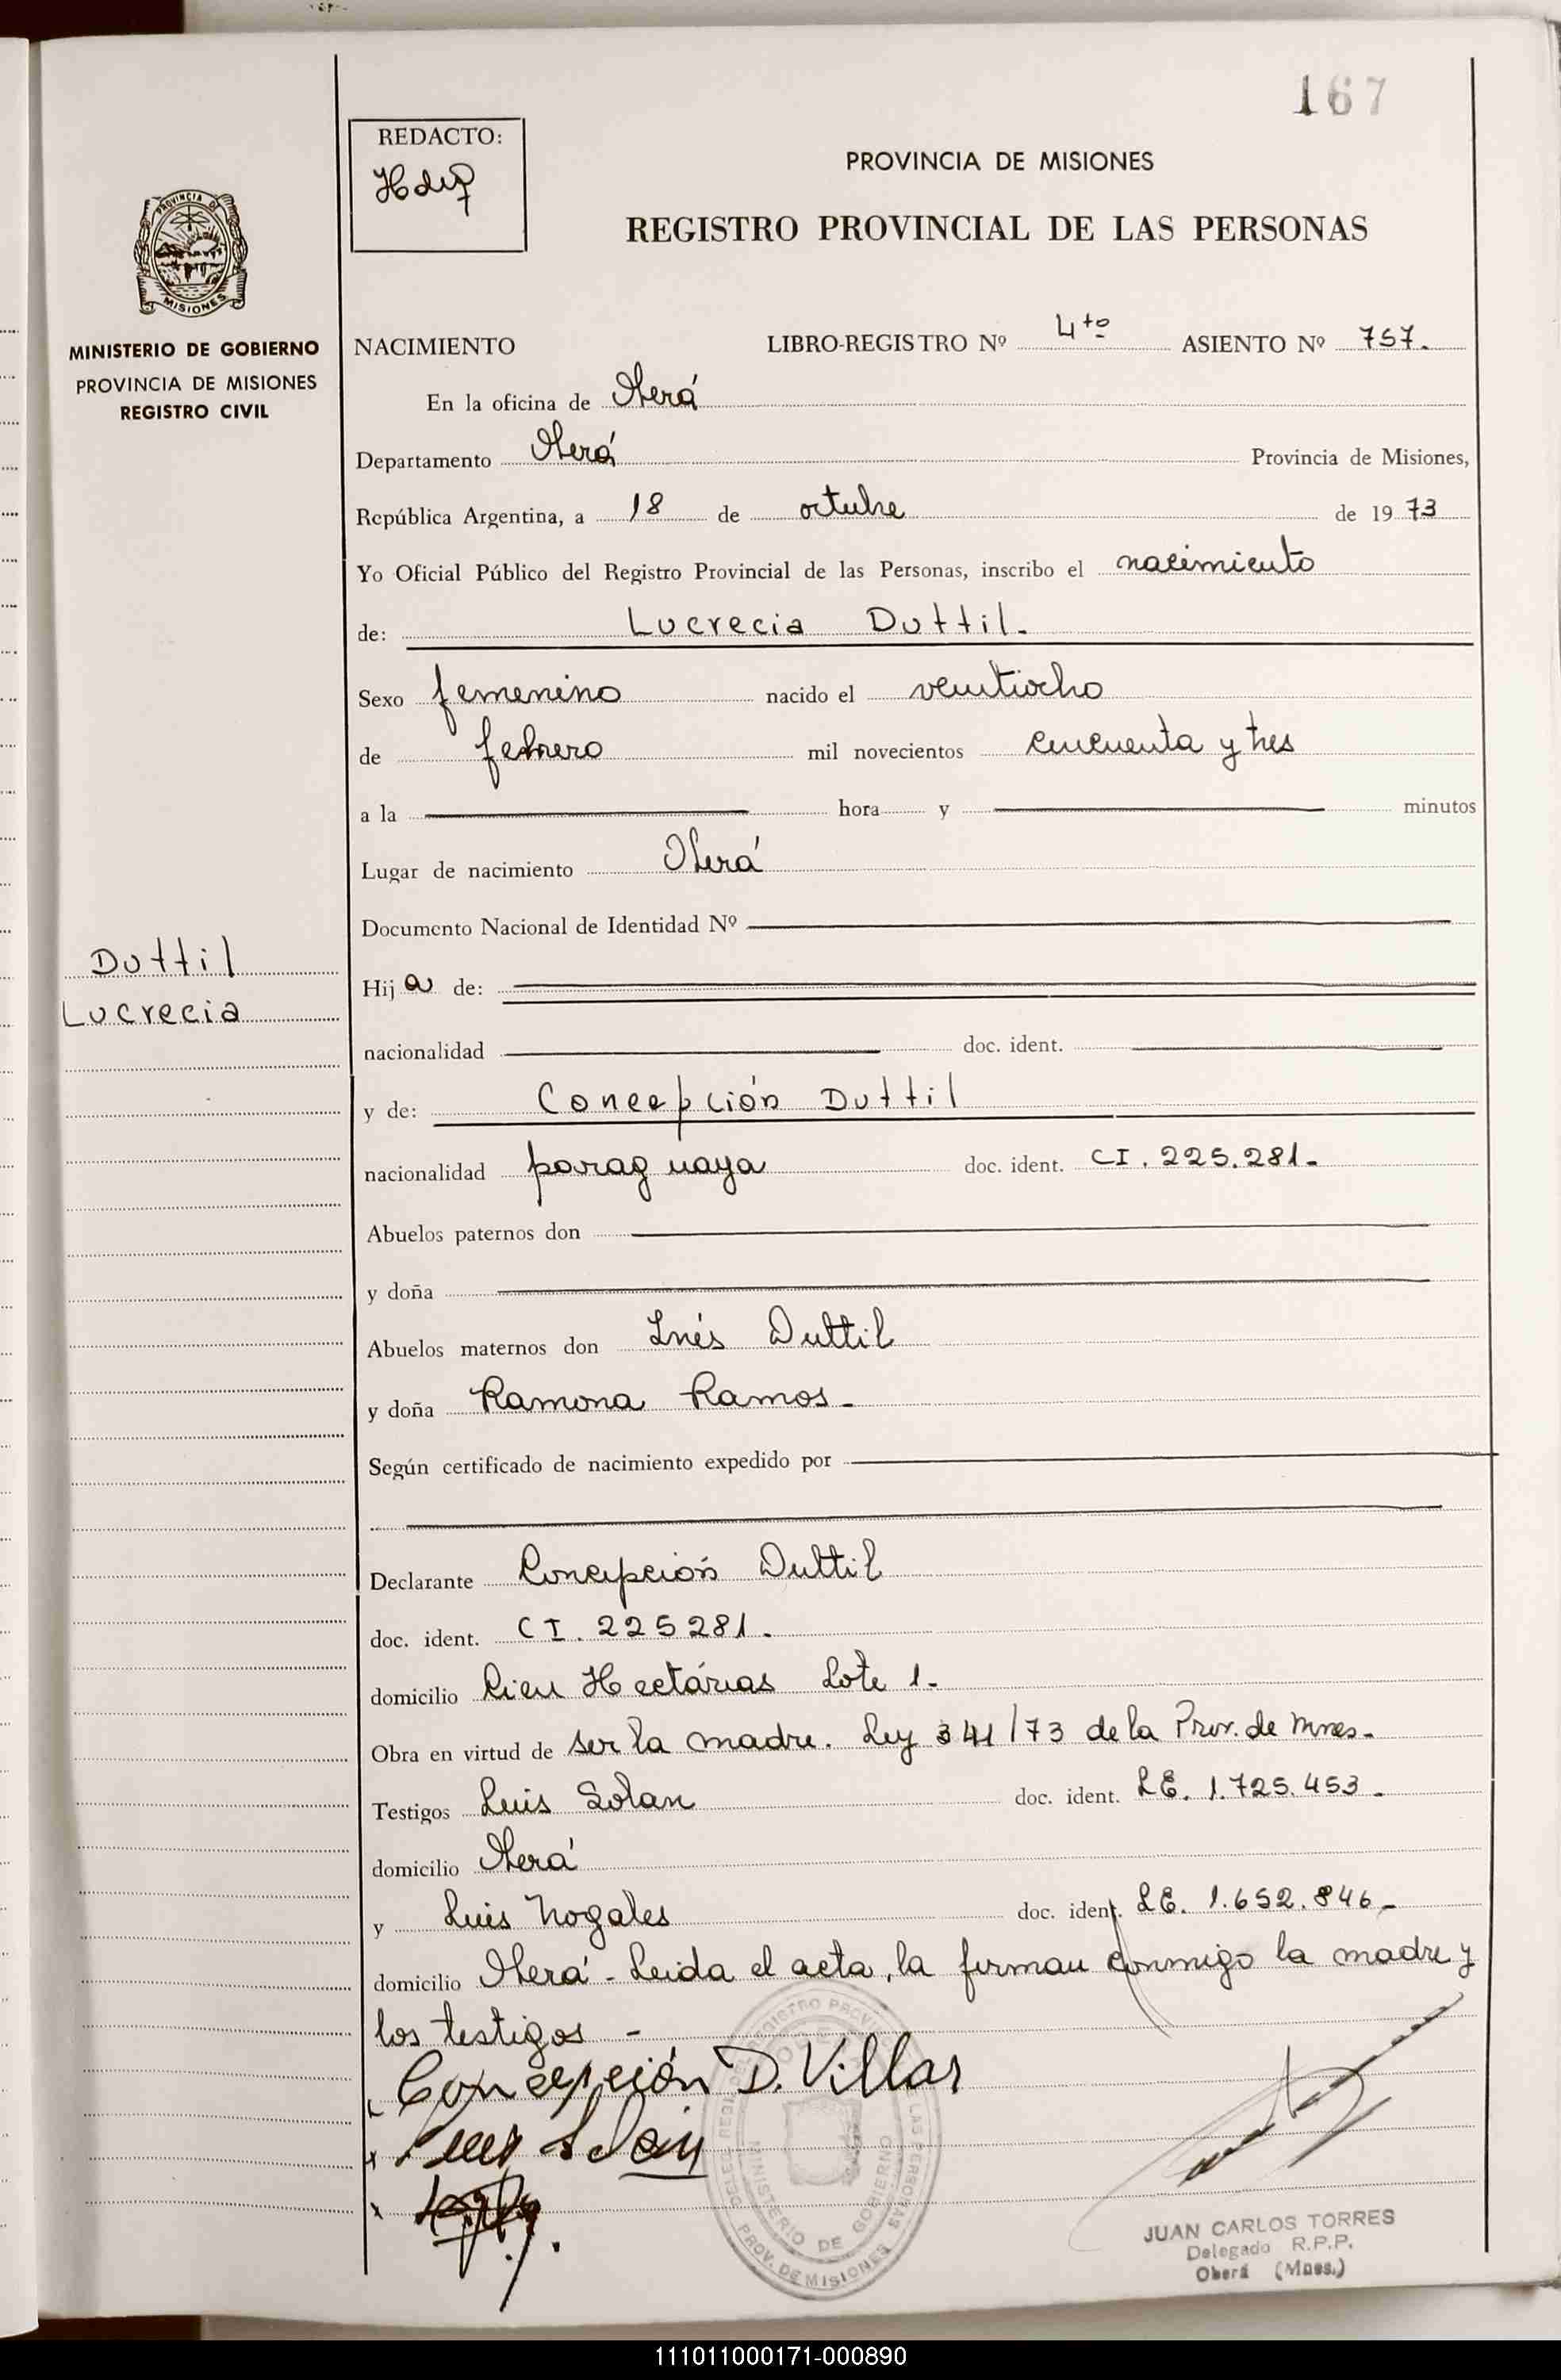 167
REDACTO:
PROVINCIA DE MISIONES
REGISTRO PROVINCIAL DE LAS PERSONAS
PROVINCIA DE
MISIONES
MINISTERIO DE GOBIERNO
PROVINCIA DE MISIONES
REGISTRO CIVIL
NACIMIENTO LIBRO-REGISTRO Nº 4to ASIENTO Nº 757.
En la oficina de Oberá
Departamento Oberá Provincia de Misiones,
República Argentina, a 18 de octubre de 1973
Yo Oficial Público del Registro Provincial de las Personas, inscribo el nacimiento
de: Lucrecia Duttil.
Sexo femenino nacido el veintiocho
de febrero mil novecientos cincuenta y tres
a la hora y minutos
Lugar de nacimiento Oberá
Documento Nacional de Identidad Nº
Duttil
Lucrecia
Hija de:
nacionalidad doc. ident.
y de: Concepción Duttil
nacionalidad paraguaya doc. ident. CI. 225.281.
Abuelos paternos don
y doña
Abuelos maternos don Inés Duttil
y doña Ramona Ramos.
Según certificado de nacimiento expedido por
Declarante Concepción Duttil
doc. ident. CI. 225281.
domicilio Cien Hectárias Lote 1.
Obra en virtud de ser la madre. Ley 341/73 de la Prov. de Mnes.
Testigos Luis Solan doc. ident. LE. 1.725.453.
domicilio Oberá
y Luis Nogales doc. ident. LE. 1.652.846.
domicilio Oberá - Leida el acta, la firman conmigo la madre y
los testigos -
Concepción D. Villar
Luis Solan
MINISTERIO DE GOBIERNO
PROV. DE MISIONES
JUAN CARLOS TORRES
Delegado R.P.P.
Oberá (Mnes.)
111011000171-000890